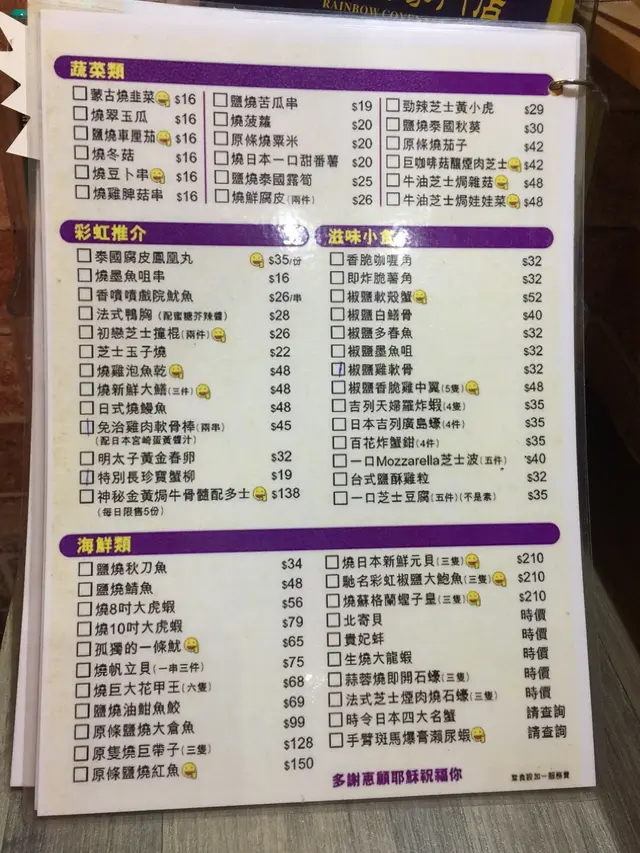 RAINBOW
蔬菜類
蒙古燒韭菜 $16
燒翠玉瓜 $16
鹽燒車厘茄 $16
燒冬菇 $16
燒豆卜串 $16
燒雞脾菇串 $16
鹽燒苦瓜串 $19
燒菠蘿 $20
原條燒粟米 $20
燒日本一口甜番薯 $20
鹽燒泰國露筍 $25
燒鮮腐皮(兩件) $26
勁辣芝士黃小虎 $29
鹽燒泰國秋葵 $30
原條燒茄子 $42
巨咖啡菇釀煙肉芝士 $42
牛油芝士焗雜菇 $48
牛油芝士焗娃娃菜 $48
彩虹推介
泰國腐皮鳳凰丸 $35/份
燒墨魚咀串 $16
香噴噴戲院魷魚 $26/串
法式鴨胸(配蜜糖芥辣醬) $28
初戀芝士撞棍(兩件) $26
芝士玉子燒 $22
燒雞泡魚乾 $48
燒新鮮大鱔(三件) $48
日式燒鰻魚 $48
免治雞肉軟骨棒(兩串) $45
(配日本宮崎蛋黃醬汁)
明太子黃金春卵 $32
特別長珍寶蟹柳 $19
神秘金黃焗牛骨髓配多士 $138
(每日限售5份)
滋味小食
香脆咖喱角 $32
即炸脆薯角 $32
椒鹽軟殼蟹 $52
椒鹽白鱔骨 $40
椒鹽多春魚 $32
椒鹽墨魚咀 $32
椒鹽雞軟骨 $32
椒鹽香脆雞中翼(5隻) $48
吉列天婦羅炸蝦(4隻) $35
日本吉列廣島蠔(4件) $35
百花炸蟹鉗(4件) $35
一口Mozzarella芝士波(五件) $40
台式鹽酥雞粒 $32
一口芝士豆腐(五件)(不是素) $35
海鮮類
鹽燒秋刀魚 $34
鹽燒鯖魚 $48
燒8吋大虎蝦 $56
燒10吋大虎蝦 $79
孤獨的一條魷 $65
燒帆立貝(一串三件) $75
燒巨大花甲王(六隻) $68
鹽燒油鮒魚鮫 $69
原條鹽燒大倉魚 $99
原隻燒巨帶子(三隻) $128
原條鹽燒紅魚 $150
燒日本新鮮元貝(三隻) $210
馳名彩虹椒鹽大鮑魚(三隻) $210
燒蘇格蘭蟶子皇(三隻) $210
北寄貝 時價
貴妃蚌 時價
生燒大龍蝦 時價
蒜蓉燒即開石蠔(三隻) 時價
法式芝士煙肉燒石蠔(三隻) 時價
時令日本四大名蟹 請查詢
手臂斑馬爆膏瀨尿蝦 請查詢
多謝惠顧耶穌祝福你
堂食設加一服務費